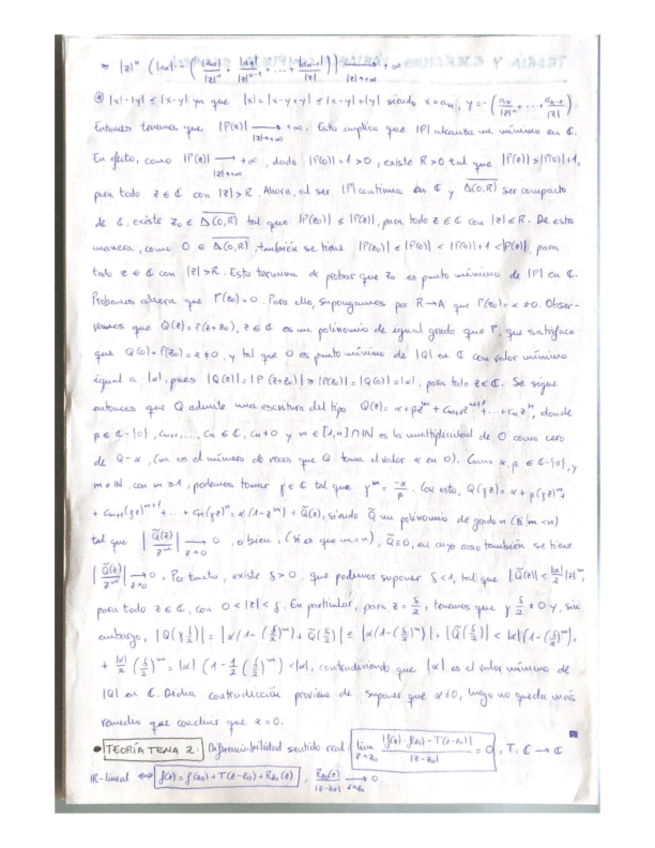 ≥ |z|ⁿ (|aₙ| - (|a₀|/|z|ⁿ + |a₁|/|z|ⁿ⁻¹ + ... + |aₙ₋₁|/|z|)) → +∞ |z|→+∞
|x|-|y| ≤ |x-y| ya que |x| = |x-y+y| ≤ |x-y|+|y| siendo x=aₙ, y=-(a₀/|z|ⁿ + ... + aₙ₋₁/|z|)
Entonces tenemos que |P(z)| → +∞. Esto implica que |P| alcanza un mínimo en ℂ. |z|→+∞
En efecto, como |P(z)| → +∞, dado |P(0)|+1>0, existe R>0 tal que |P(z)|>|P(0)|+1, |z|→+∞
para todo z∈ℂ con |z|>R. Ahora, al ser |P| continua en ℂ y Δ(0,R) ser compacto
de ℂ, existe z₀∈ Δ(0,R) tal que |P(z₀)| ≤ |P(z)|, para todo z∈ℂ con |z|≤R. De esta
manera, como 0∈ Δ(0,R), también se tiene |P(z₀)| ≤ |P(0)| < |P(0)|+1 < |P(z)|, para
todo z∈ℂ con |z|>R. Esto termina de probar que z₀ es punto mínimo de |P| en ℂ.
Probamos ahora que P(z₀)=0. Para ello, supongamos por R→A que P(z₀)=α≠0. Obser-
vamos que Q(z)=P(z+z₀), z∈ℂ es un polinomio de igual grado que P, que satisface
que Q(0)=P(z₀)=α≠0, y tal que 0 es punto mínimo de |Q| en ℂ con valor mínimo
igual a |α|, pues |Q(z)|=|P(z+z₀)| ≥ |P(z₀)|=|Q(0)|=|α|, para todo z∈ℂ. Se sigue
entonces que Q admite una escritura del tipo Q(z)=α+βzᵐ+cₘ₊₁zᵐ⁺¹+...+cₙzⁿ, donde
β∈ℂ-{0}, cₘ₊₁,..., cₙ∈ℂ, cₙ≠0 y m∈[1,n]∩ℕ es la multiplicidad de 0 como cero
de Q-α, (m es el número de veces que Q toma el valor α en 0). Como α,β∈ℂ-{0}, y
m∈ℕ con m≥1, podemos tomar γ∈ℂ tal que γᵐ = -α/β. Con esto, Q(γz)=α+β(γz)ᵐ+
+cₘ₊₁(γz)ᵐ⁺¹+...+cₙ(γz)ⁿ=α(1-zᵐ)+Q̃(z), siendo Q̃ un polinomio de grado n (si m<n)
tal que |Q̃(z)/zᵐ| → 0 z→0, o bien, (si es que m=n), Q̃≡0, en cuyo caso también se tiene
|Q̃(z)/zᵐ| → 0 z→0. Por tanto, existe δ>0, que podemos suponer δ<1, tal que |Q̃(z)|<|α|/2 |z|ᵐ,
para todo z∈ℂ, con 0<|z|<δ. En particular, para z=δ/2, tenemos que γ δ/2 ≠0 y, sin
embargo, |Q(γ δ/2)| = |α(1-(δ/2)ᵐ)+Q̃(δ/2)| ≤ |α(1-(δ/2)ᵐ)|+|Q̃(δ/2)| < |α|(1-(δ/2)ᵐ)+
+ |α|/2 (δ/2)ᵐ = |α| (1-1/2(δ/2)ᵐ) <|α|, contradiciendo que |α| es el valor mínimo de
|Q| en ℂ. Dicha contradicción proviene de suponer que α≠0, luego no queda más
remedio que concluir que α=0.
● TEORÍA TEMA 2. Diferenciabilidad sentido real: lim z→z₀ |f(z)-f(z₀)-T(z-z₀)|/|z-z₀| = 0, T: ℂ → ℂ
ℝ-lineal ⇔ f(z)=f(z₀)+T(z-z₀)+R_z₀(z), R_z₀(z)/|z-z₀| → 0 z→z₀